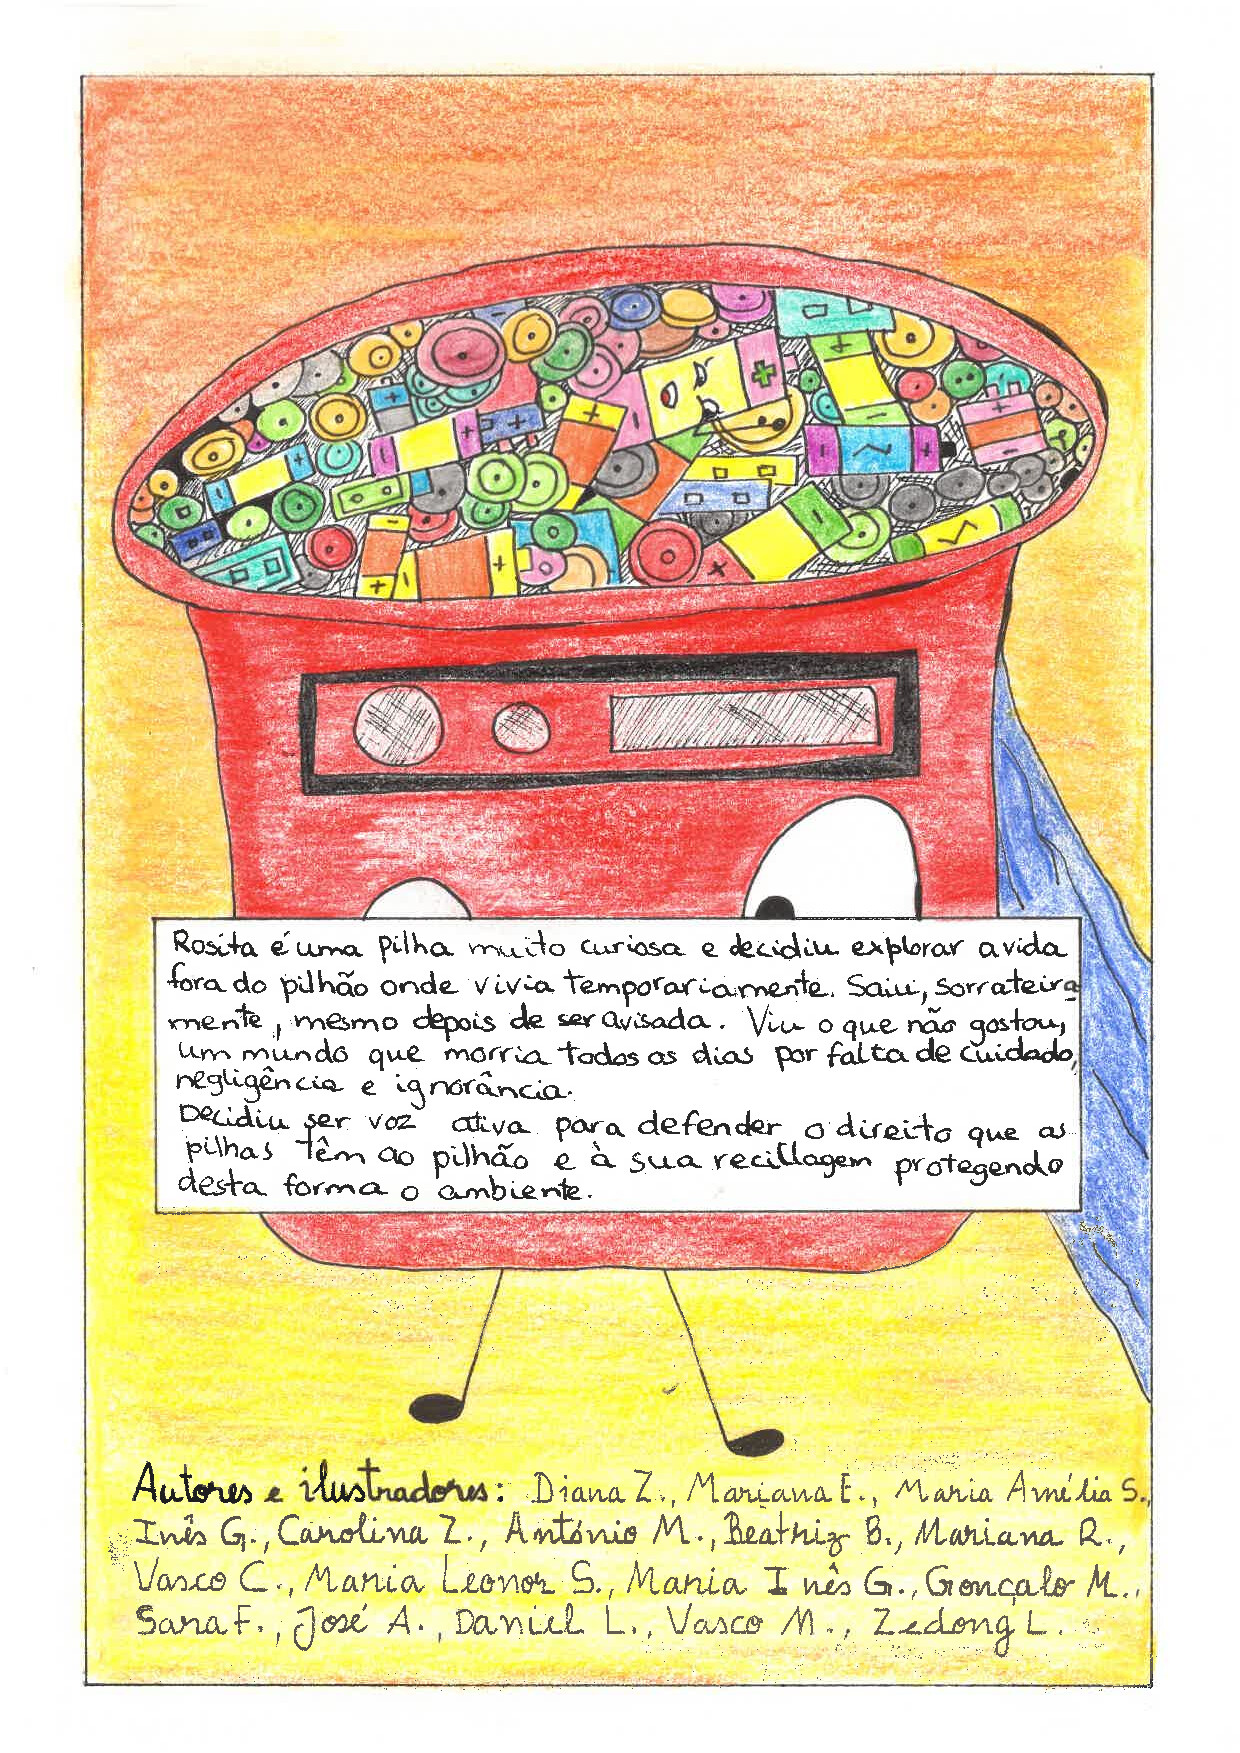 Rosita é uma pilha muito curiosa e decidiu explorar a vida
fora do pilhão onde vivia temporariamente. Saiu, sorrateira
mente, mesmo depois de ser avisada. Viu o que não gostou,
um mundo que morria todos os dias por falta de cuidado,
negligência e ignorância.
Decidiu ser voz ativa para defender o direito que as
pilhas têm ao pilhão e à sua recillagem protegendo
desta forma o ambiente.
Autores e ilustradores: Diana Z., Mariana E., Maria Amélia S.,
Inês G., Carolina Z., António M., Beatriz B., Mariana R.,
Vasco C., Maria Leonor S., Maria Inês G., Gonçalo M.,
Sara F., José A., Daniel L., Vasco M., Zedong L.